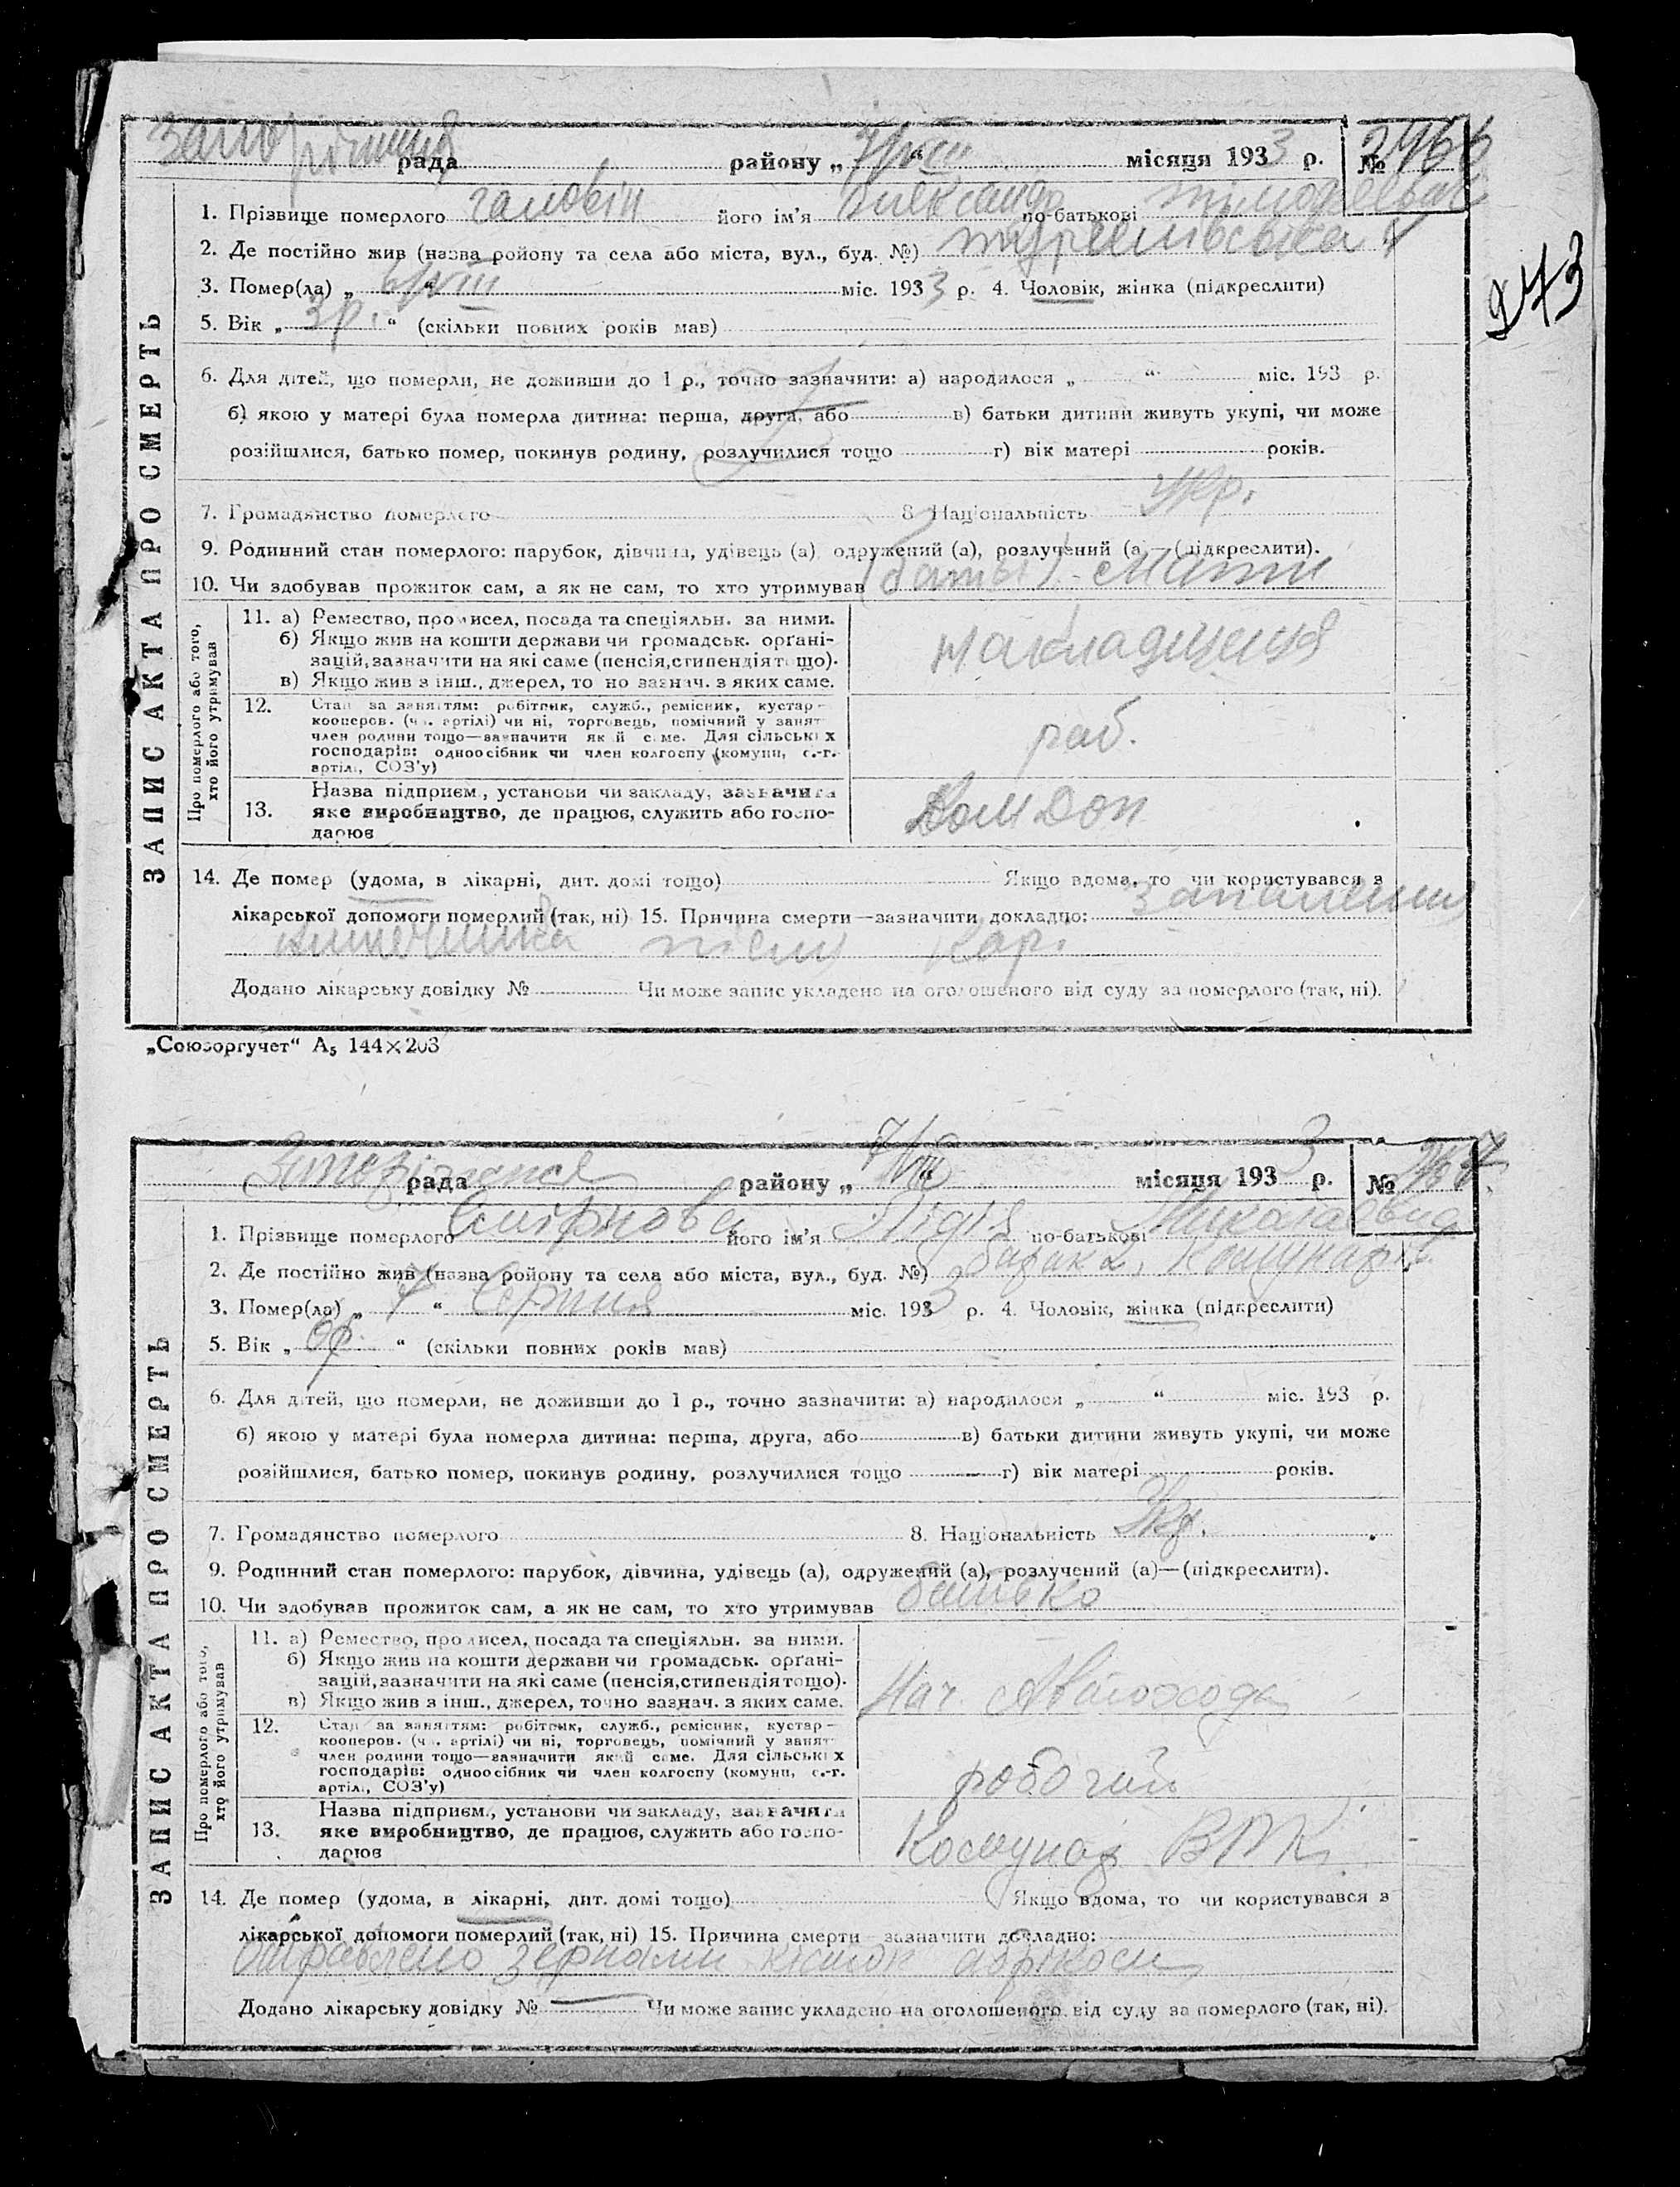 рада району „ 7/VIII “ місяця 1933 р. № 2466
1. Прізвище померлого його ім'я Александр по-батькові Тімофеевич
2. Де постійно жив (назва ройону та села або міста, вул., буд. №)
3. Помер(ла) „ 6/VIII “ міс. 1933 р. 4. Чоловік, жінка (підкреслити)
5. Вік „ 3 р. “ (скільки повних років мав)
273
6. Для дітей, що померли, не доживши до 1 р., точно зазначити: а) народилося „ “ міс. 193 р.
б) якою у матері була померла дитина: перша, друга, або в) батьки дитини живуть укупі, чи може
розійшлися, батько помер, покинув родину, розлучилися тощо г) вік матері років.
7. Громадянство померлого 8. Національність укр.
9. Родинний стан померлого: парубок, дівчина, удівець (а), одружений (а), розлучений (а)—(підкреслити).
10. Чи здобував прожиток сам, а як не сам, то хто утримував мати
ЗАПИС АКТА ПРО СМЕРТЬ
Про померлого або того, хто його утримував
11. а) Ремество, промисел, посада та спеціяльн. за ними.
б) Якщо жив на кошти держави чи громадськ. орґані-
зацій, зазначити на які саме (пенсія, стипендія тощо).
в) Якщо жив з інш., джерел, точно зазнач. з яких саме.
накладчиця
12. Стан за заняттям: робітник, служб., ремісник, кустар-
кооперов. (чл. артілі) чи ні, торговець, помічний у занят
член родини тощо—зазначити який саме. Для сільських
господарів: одноосібник чи член колгоспу (комуни, с.-г.
артілі, СОЗ'у)
раб.
13. Назва підприєм., установи чи закладу, зазначити
яке виробництво, де працює, служить або госпо-
дарює
14. Де помер (удома, в лікарні, дит. домі тощо) Якщо вдома, то чи користувався з
лікарської допомоги померлий (так, ні) 15. Причина смерти—зазначити докладно: запалення
Додано лікарську довідку № Чи може запис укладено на оголошеного від суду за померлого (так, ні).
„Союзоргучет“ А₅ 144×203
рада району „ 7/VIII “ місяця 1933 р. № 2467
1. Прізвище померлого Смірнова його ім'я Лідія по-батькові
2. Де постійно жив (назва ройону та села або міста, вул., буд. №) барак 2, Комунар
3. Помер(ла) „ 7 “ Серпня міс. 1933 р. 4. Чоловік, жінка (підкреслити)
5. Вік „ “ (скільки повних років мав)
6. Для дітей, що померли, не доживши до 1 р., точно зазначити: а) народилося „ “ міс. 193 р.
б) якою у матері була померла дитина: перша, друга, або в) батьки дитини живуть укупі, чи може
розійшлися, батько помер, покинув родину, розлучилися тощо г) вік матері років.
7. Громадянство померлого 8. Національність Укр.
9. Родинний стан померлого: парубок, дівчина, удівець (а), одружений (а), розлучений (а)—(підкреслити).
10. Чи здобував прожиток сам, а як не сам, то хто утримував батько
ЗАПИС АКТА ПРО СМЕРТЬ
Про померлого або того, хто його утримував
11. а) Ремество, промисел, посада та спеціяльн. за ними.
б) Якщо жив на кошти держави чи громадськ. орґані-
зацій, зазначити на які саме (пенсія, стипендія тощо).
в) Якщо жив з інш., джерел, точно зазнач. з яких саме.
Нач.
12. Стан за заняттям: робітник, служб., ремісник, кустар-
кооперов. (чл. артілі) чи ні, торговець, помічний у занят
член родини тощо—зазначити який саме. Для сільських
господарів: одноосібник чи член колгоспу (комуни, с.-г.
артілі, СОЗ'у)
робочий
13. Назва підприєм., установи чи закладу, зазначити
яке виробництво, де працює, служить або госпо-
дарює
Комунар
14. Де помер (удома, в лікарні, дит. домі тощо) Якщо вдома, то чи користувався з
лікарської допомоги померлий (так, ні) 15. Причина смерти зазначити докладно:
зернами кісток абрікоси
Додано лікарську довідку № Чи може запис укладено на оголошеного від суду за померлого (так, ні).